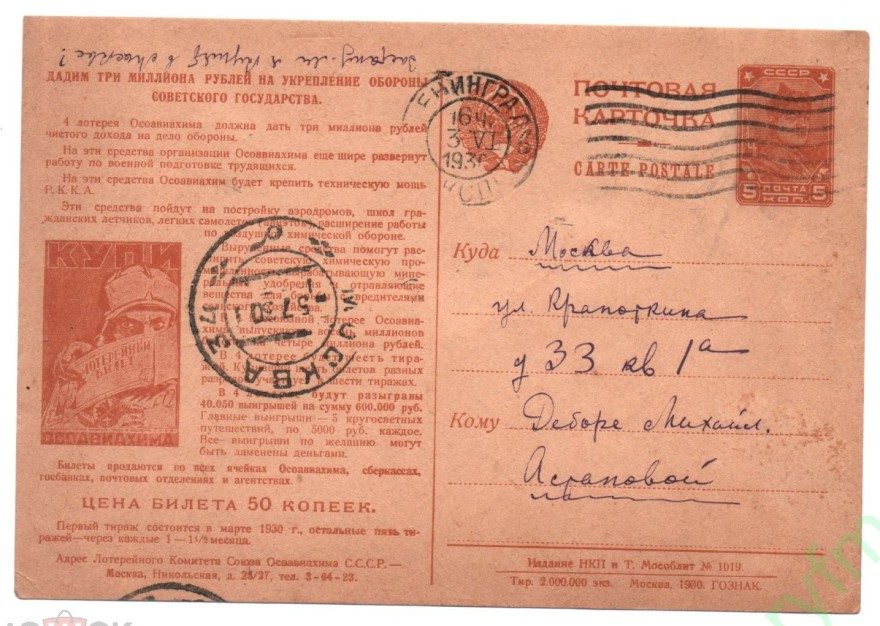 в Москве?
ДАДИМ ТРИ МИЛЛИОНА РУБЛЕЙ НА УКРЕПЛЕНИЕ ОБОРОНЫ
СОВЕТСКОГО ГОСУДАРСТВА.
4 лотерея Осоавиахима должна дать три миллиона рублей
чистого дохода на дело обороны.
На эти средства организации Осоавиахима еще шире развернут
работу по военной подготовке трудящихся.
На эти средства Осоавиахим будет крепить техническую мощь
Р.К.К.А.
Эти средства пойдут на постройку аэродромов, школ гра-
жданских летчиков, легких самолетов расширение работы
по химической обороне.
Вырученные средства помогут рас-
ширить советскую химическую про-
мышленность, вырабатывающую мине-
удобрения отравляющие
вещества для вредителями
лотерее Осоавиа-
хима выпускаются восемь миллионов
четыре миллиона рублей.
В 4 лотерее будет шесть тира-
билетов разных
шести тиражах.
В 4 будут разыграны
40.050 выигрышей на сумму 600.000 руб.
Главные выигрыши—5 кругосветных
путешествий, по 5000 руб. каждое.
Все выигрыши по желанию могут
быть заменены деньгами.
КУПИ
ЛОТЕРЕЙНЫЙ
БИЛЕТ
ОСОАВИАХИМА
Билеты продаются во всех ячейках Осоавиахима, сберкассах,
госбанках, почтовых отделениях и агентствах.
ЦЕНА БИЛЕТА 50 КОПЕЕК.
Первый тираж состоится в марте 1930 г., остальные пять ти-
ражей—через каждые 1—1½ месяца.
Адрес Лотерейного Комитета Союза Осоавиахима С.С.С.Р.—
Москва, Никольская, д. 25/27, тел. 3-64-23.
МОСКВА
ЛЕНИНГРАД
3 VI
ПОЧТОВАЯ
КАРТОЧКА
CARTE POSTALE
СССР
5 ПОЧТА 5
КОП.
Куда Москва
ул. Крапоткина
д 33 кв 1а
Кому Деборе Михайл.
Астаповой
Издание НКП и Т. Мособлит № 1019.
Тир. 2.000.000 экз. Москва. 1930. ГОЗНАК.